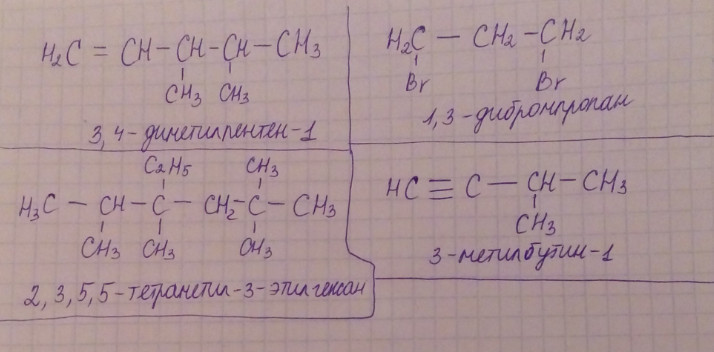 H₂C = CH – CH – CH – CH₃
CH₃ CH₃
3,4-диметилпентен-1
H₂C – CH₂ – CH₂
Br Br
1,3-дибромпропан
C₂H₅ CH₃
H₃C – CH – C – CH₂ – C – CH₃
CH₃ CH₃ CH₃
2,3,5,5-тетраметил-3-этилгексан
HC ≡ C – CH – CH₃
CH₃
3-метилбутин-1